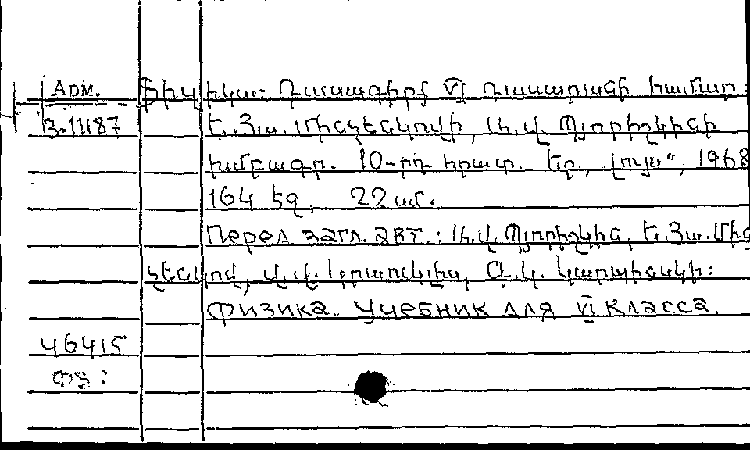 Арм.
Ֆիզիկա: Դասագիրք VI դասարանի համար:
3-11187
Ե. Յա. Մինչենկովի, Ա. Վ. Պյորիշկինի
խմբագր. 10-րդ հրատ. Եր., „Լույս“, 1968
164 էջ, 22 սմ.
Перед загл. авт.: Ա. Վ. Պյորիշկին, Ե. Յա. Մին
չենկով,
Физика. Учебник для VI класса.
46415